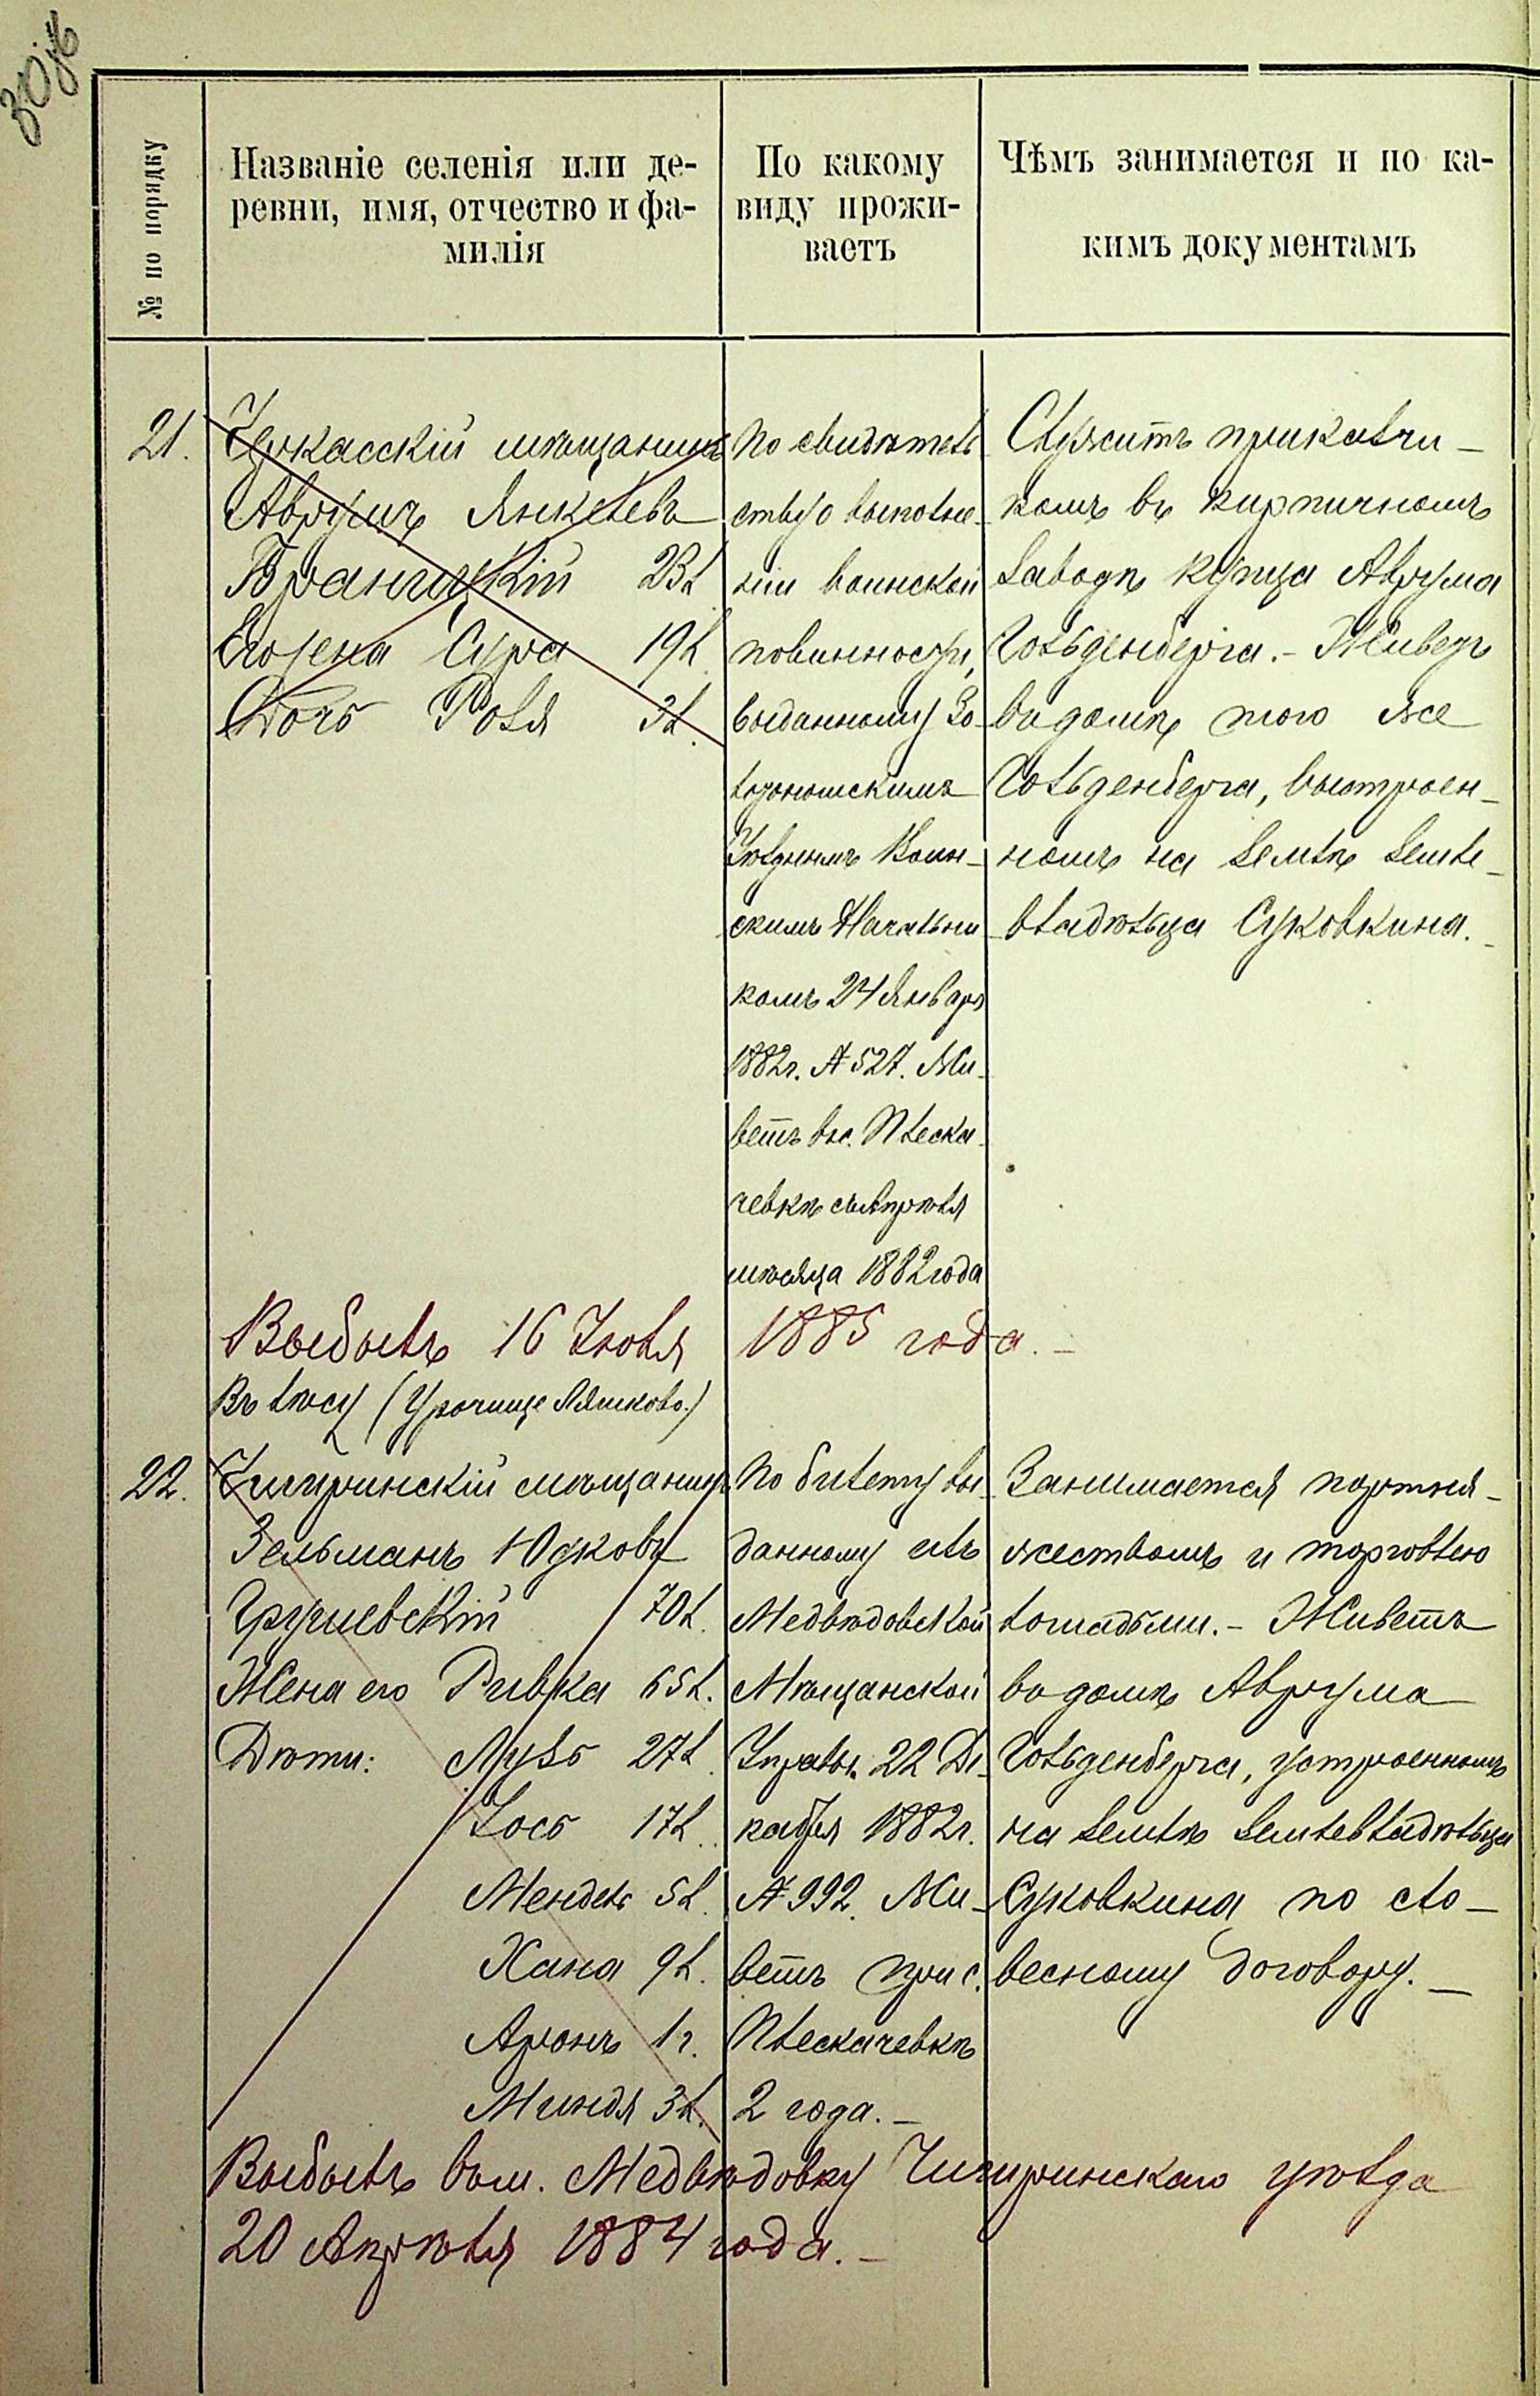 30
№ по порядку
Названіе селенія или де-
ревни, имя, отчество и фа-
милія
По какому
виду прожи-
ваетъ
Чѣмъ занимается и по ка-
кимъ документамъ
21.
Черкасскій мѣщанинъ
Аврумъ Янкелевъ
Браницкій 23 л.
Его жена Сура 19 л.
Дочь Роза 3 л.
По свидѣтель
ству о выполне-
ніи воинской
повинности,
выданному Зо-
лотоношскимъ
Уѣзднымъ Воин-
скимъ Начальни
комъ 24 Января
1882 г. № 527. Жи-
ветъ въ с. Плеска-
чевкѣ съ Апрѣля
мѣсяца 1882 года
Служитъ прикащи-
комъ въ кирпичномъ
заводѣ купца Аврума
Гольденберга. - Живетъ
въ домѣ того же
Гольденберга, выстроен-
номъ на землѣ земле-
владѣльца Суковкина.
Выбылъ 16 Іюля 1885 года. -
Въ лѣсу (Урочище Ляшково.)
22.
Чигиринскій мѣщанинъ
Зельманъ Юдковъ
Грушевскій 70 л.
Жена его Ривка 65 л.
Дѣти: Лузь 27 л.
Іось 17 л.
Мендель 5 л.
Хана 9 л.
Аронъ 1 г.
Миндя 3 л.
По билету вы-
данному изъ
Медвѣдовской
Мѣщанской
Управы 22 Де-
кабря 1882 г.
№ 992. Жи-
ветъ при с.
Плескачевкѣ
2 года. -
Занимается портня-
жествомъ и торговлею
лошадьми. - Живетъ
въ домѣ Аврума
Гольденберга, устроенномъ
на землѣ землевладѣльца
Суковкина по сло-
весному договору. -
Выбылъ въ м. Медвѣдовку Чигиринскаго уѣзда
20 Апрѣля 1884 года. -